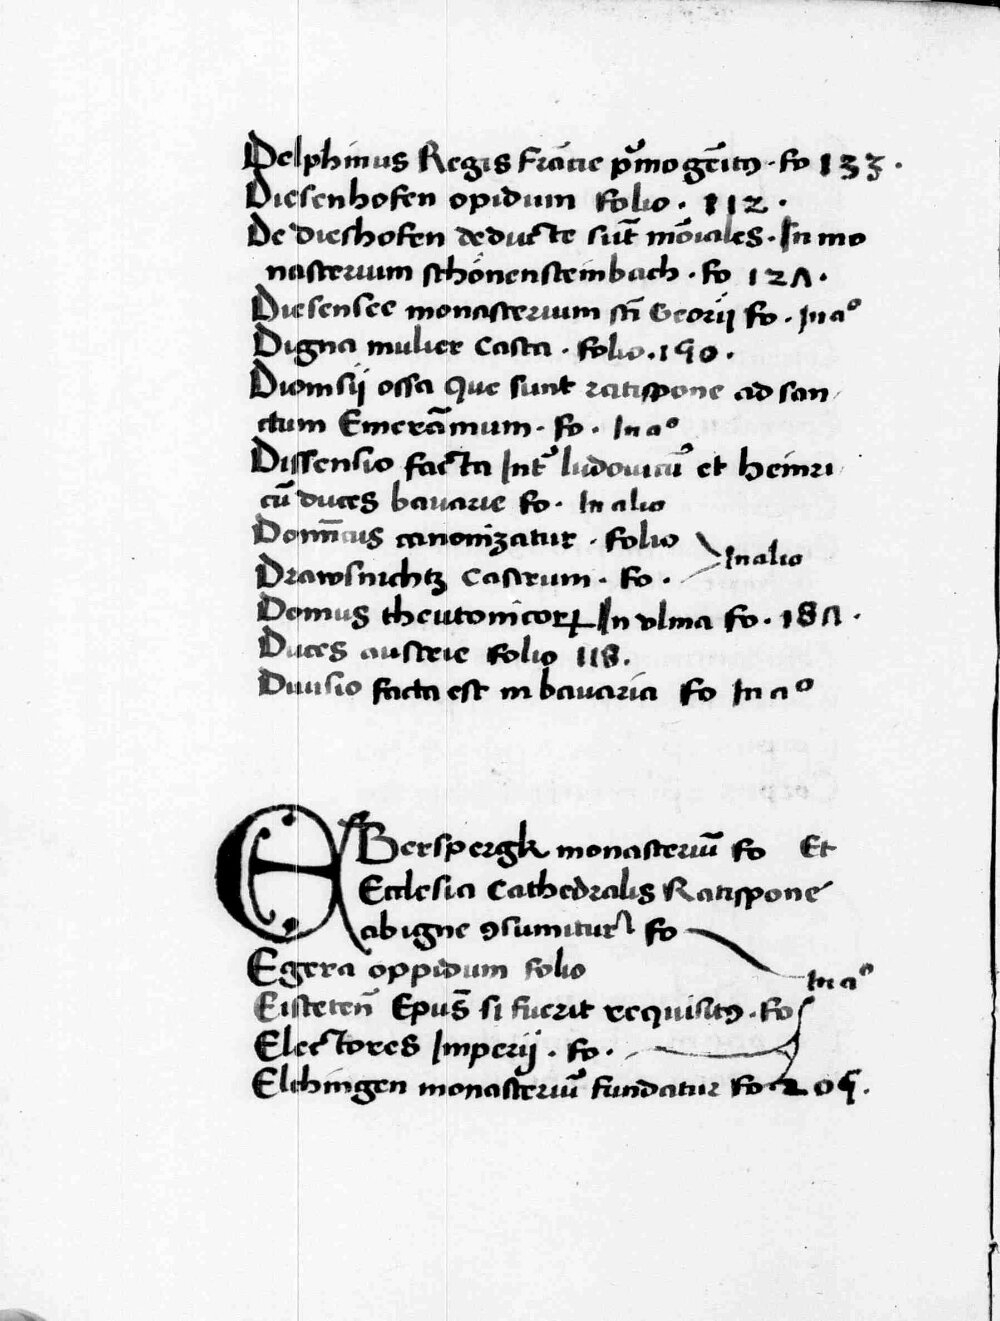 Delphinus Regis Francie p̃mogẽitꝰ · fo 133 ·
Diesenhofen opidum folio · 112 ·
De dieshofen deducte sũt mõiales · In mo
nasterium schönensteinbach · fo 127 ·
Diesensee monasterium sc̃i Georij fo · In aᵒ
Digna mulier casta · folio · 190 ·
Dionisij ossa que sunt ratispone ad san
ctum Emerãmum · fo · In aᵒ
Dissensio facta Int᷑ ludouicũ et heinri
cũ duces bauarie fo · In alio
Domĩcus canonizatur · folio
In alio
Drawsnichtz castrum · fo ·
Domus theutonicoꝝ In vlma fo · 187 ·
Duces austrie folio 118 ·
Diuisio facta est in bauaria fo In aᵒ
EBerspergk monasteriũ fo Et
Ecclesia Cathedralis Ratispone
ab igne ꝯsumitur fo
Egera oppidum folio
In aᵒ
Eisteteñ Epus̃ si fuerit requisitꝰ · fo
Electores Imperij · fo ·
Elchingen monasteriũ fundatur fo 205 ·